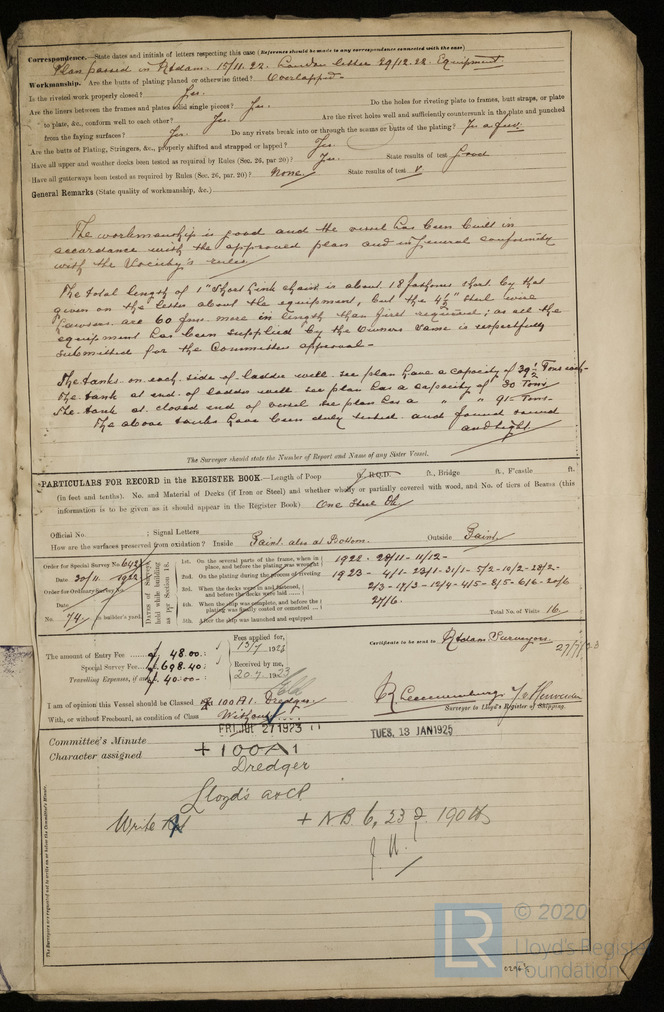 Correspondence.—State dates and initials of letters respecting this case (Reference should be made to any correspondence connected with the case)
Plan passed in Rdam. 15/11.22. London letter 29/12.22. Equipment
Workmanship. Are the butts of plating planed or otherwise fitted? Overlapped-
Is the riveted work properly closed? Yes.
Are the liners between the frames and plates solid single pieces? Yes. Do the holes for riveting plate to frames, butt straps, or plate
to plate, &c., conform well to each other? Yes. Are the rivet holes well and sufficiently countersunk in the plate and punched
from the faying surfaces? Yes. Do any rivets break into or through the seams or butts of the plating? In a few
Are the butts of Plating, Stringers, &c., properly shifted and strapped or lapped? Yes.
Have all upper and weather decks been tested as required by Rules (Sec. 26, par. 20)? Yes. State results of test Good
Have all gutterways been tested as required by Rules (Sec. 26, par. 20)? None State results of test
General Remarks (State quality of workmanship, &c.)
The workmanship is good and the vessel has been built in
accordance with the approved plan and in general conformity
with the Society's rules
The total length of 1" Short link chain is about 18 fathoms short by that
given on the letter about the equipment, but the 4½" steel wire
hawsers are 60 fms. more in length than first required; as all the
equipment has been supplied by the Owners same is respectfully
submitted for the Committee approval-
The tanks on each side of ladder well see plan have a capacity of 39½ Tons each-
The tank at end of ladder well see plan has a capacity of 30 Tons
The tank at closed end of vessel see plan has a " " 91- Tons-
The above tanks have been duly tested and found sound
and tight
The Surveyor should state the Number of Report and Name of any Sister Vessel.
PARTICULARS FOR RECORD in the REGISTER BOOK.—Length of Poop or R.Q.D. ft., Bridge ft., F'castle ft.
(in feet and tenths). No. and Material of Decks (if Iron or Steel) and whether wholly or partially covered with wood, and No. of tiers of Beams (this
information is to be given as it should appear in the Register Book) One Steel Dk
Official No. ; Signal Letters
How are the surfaces preserved from oxidation? Inside Paint. also at Bottom. Outside Paint
Order for Special Survey No. 642
Date 30/11 1922
Order for Ordinary Survey No.
Date
No. 74 in builder's yard.
DATES of Surveys held while building as per Section 18.
1st. On the several parts of the frame, when in place, and before the plating was wrought
2nd. On the plating during the process of riveting
3rd. When the decks were in and fastened, and before the decks were laid
4th. When the ship was complete, and before the plating was finally coated or cemented
5th. After the ship was launched and equipped
1922 - 28/11 - 11/12-
1923 - 4/1- 23/1- 31/1- 5/2- 10/2- 28/2-
2/3- 17/3- 12/4- 4/5- 8/5- 6/6- 20/6
27/6.
Total No. of Visits 16
The amount of Entry Fee 48.00
Special Survey Fee 698.40
Travelling Expenses, if any 40.00
Fees applied for,
13/7 1923
Received by me,
20.7.1923
Certificate to be sent to Rdam Surveyors
27/7/23
I am of opinion this Vessel should be Classed 100A1. Dredger
With, or without Freeboard, as condition of Class Without
Surveyor to Lloyd's Register of Shipping.
Committee's Minute FRI. JUL 27 1923 TUES. 13 JAN 1925
Character assigned +100A1
Dredger
Lloyd's a&CP.
Write
+ NB. 6, 23
The Surveyors are requested not to write on or below the Committee's Minute.
LR
© 2020
Lloyd's Register
Foundation